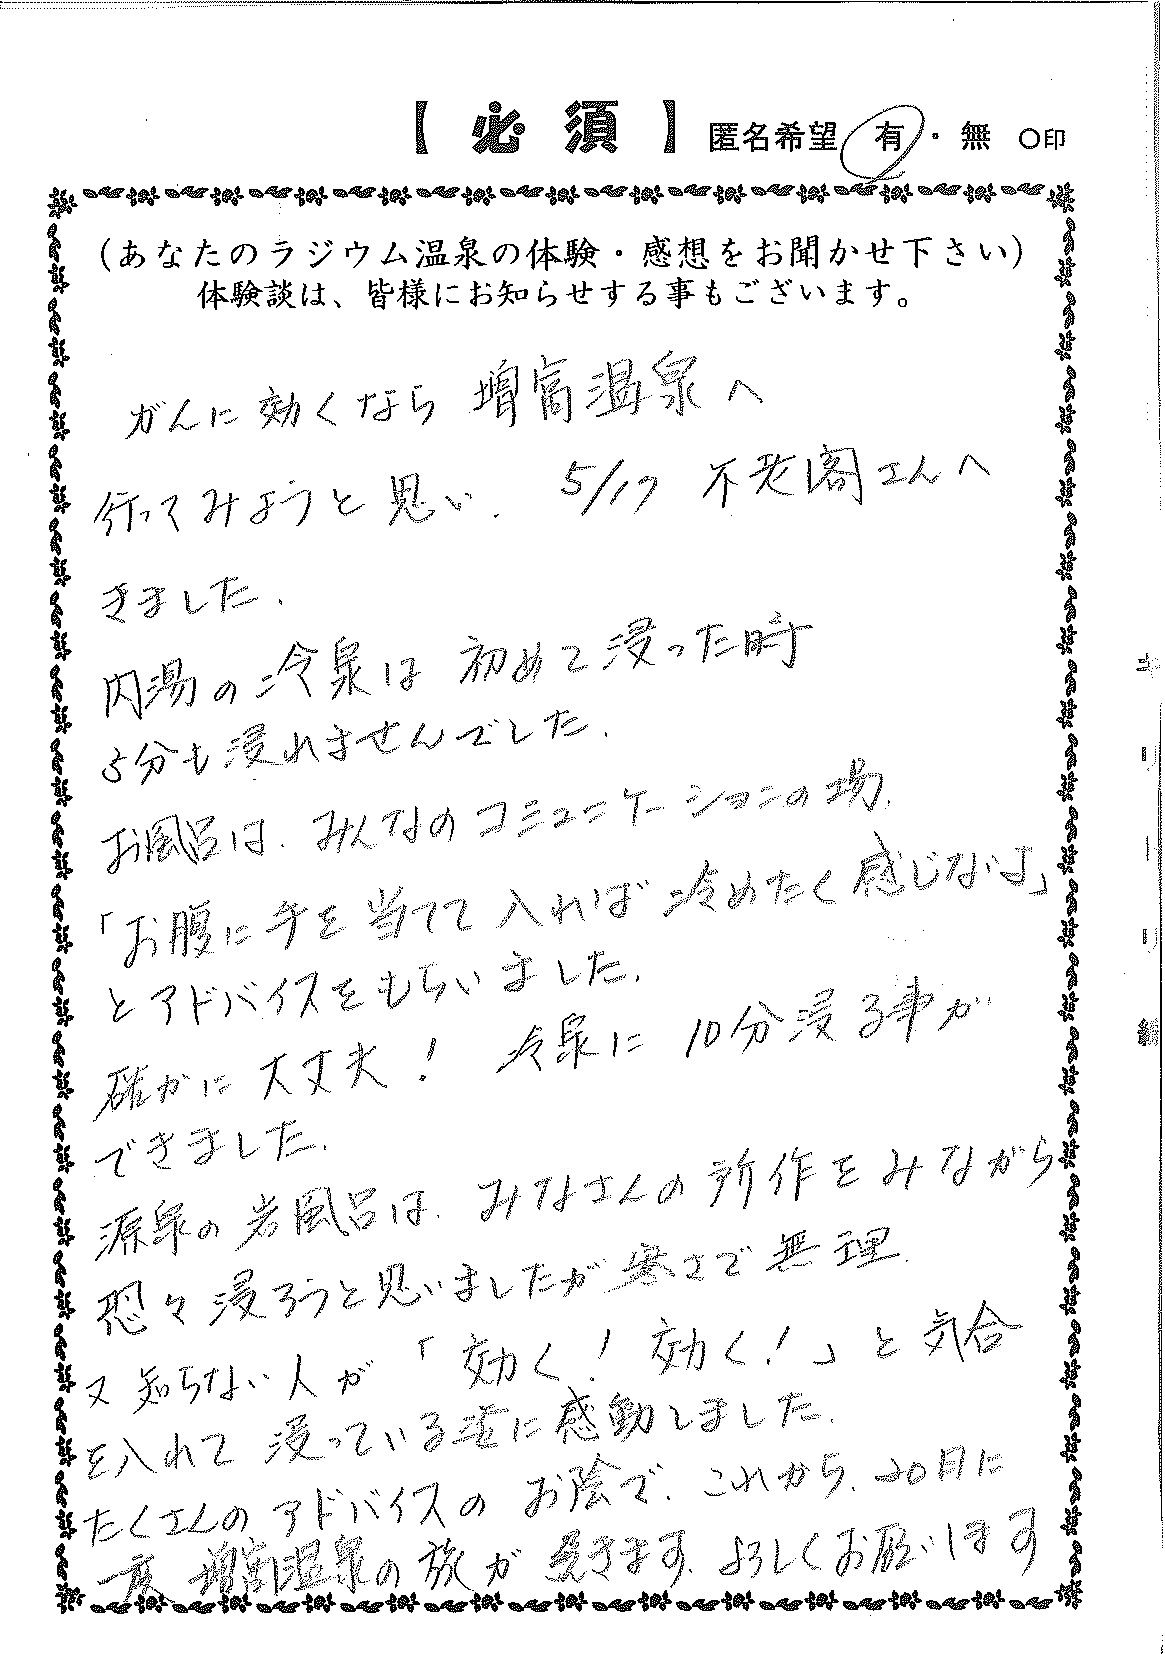 【 必 須 】 匿名希望 有・無 ○印
(あなたのラジウム温泉の体験・感想をお聞かせ下さい)
体験談は、皆様にお知らせする事もございます。
がんに効くなら 増富温泉へ
行ってみようと思い、 5/17 不老閣さんへ
きました.
内湯の冷泉は 初めて浸った時
5分も浸れませんでした.
お風呂は、みんなのコミュニケーションの場.
「お腹に手を当てて入れば冷めたく感じないよ」
とアドバイスをもらいました.
確かに大丈夫! 冷泉に 10分浸る事が
できました.
源泉の岩風呂は、みなさんの所作をみながら
恐々浸ろうと思いましたが寒さで無理.
又知らない人が「効く!効く!」と気合
を入れて浸っている姿に感動しました.
たくさんのアドバイスのお陰で、これから、20日に
一度 増富温泉の旅が続きます、よろしくお願いします
キリトリ線